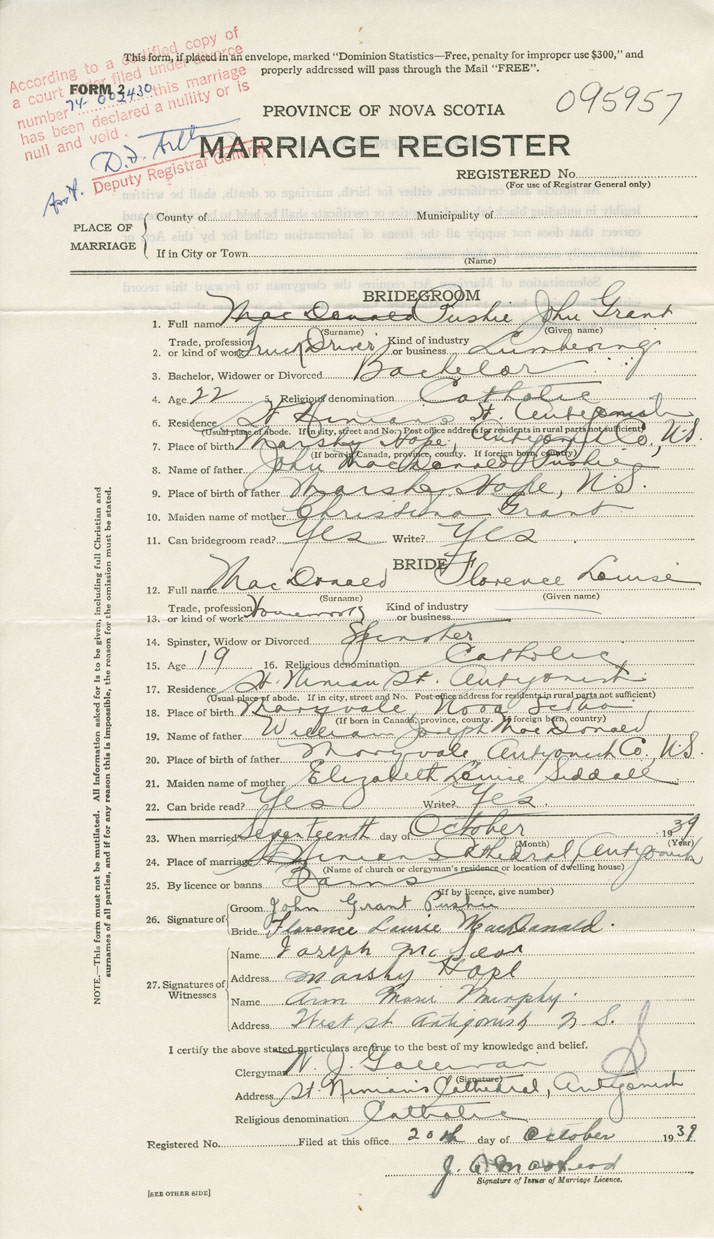 This form, if placed in an envelope, marked "Dominion Statistics—Free, penalty for improper use $300," and
properly addressed will pass through the Mail "FREE".
According to a certified copy of
a court order filed under divorce
number 74-002430 this marriage
has been declared a nullity or is
null and void.
Deputy Registrar General
FORM 2
095957
PROVINCE OF NOVA SCOTIA
MARRIAGE REGISTER
REGISTERED No.
(For use of Registrar General only)
PLACE OF MARRIAGE
County of Municipality of
If in City or Town
(Name)
BRIDEGROOM
1. Full name MacDonald Pushie John Grant
(Surname) (Given name)
2. Trade, profession or kind of work Truck Driver Kind of industry or business Lumbering
3. Bachelor, Widower or Divorced Bachelor
4. Age 22 5. Religious denomination Catholic
6. Residence St Ninian St. Antigonish
(Usual place of abode. If in city, street and No. Post office address for residents in rural parts not sufficient)
7. Place of birth Marshy Hope, Antigonish Co., N.S.
(If born in Canada, province, county. If foreign born, country)
8. Name of father John MacDonald Pushie
9. Place of birth of father Marshy Hope, N.S.
10. Maiden name of mother Christina Grant
11. Can bridegroom read? Yes Write? Yes
BRIDE
12. Full name MacDonald Florence Louise
(Surname) (Given name)
13. Trade, profession or kind of work Housework Kind of industry or business
14. Spinster, Widow or Divorced Spinster
15. Age 19 16. Religious denomination Catholic
17. Residence St. Ninian St. Antigonish
(Usual place of abode. If in city, street and No. Post office address for residents in rural parts not sufficient)
18. Place of birth Maryvale Nova Scotia
(If born in Canada, province, county. If foreign born, country)
19. Name of father William Joseph MacDonald
20. Place of birth of father Maryvale Antigonish Co., N.S.
21. Maiden name of mother Elizabeth Louise Siddall
22. Can bride read? Yes Write? Yes.
23. When married Seventeenth day of October 1939
(Month) (Year)
24. Place of marriage St Ninian's Cathedral, Antigonish
(Name of church or clergyman's residence or location of dwelling house)
25. By licence or banns Banns
(If by licence, give number)
26. Signature of
Groom John Grant Pushie
Bride Florence Louise MacDonald.
27. Signatures of Witnesses
Name Joseph
Address Marshy Hope
Name Ann Marie Murphy.
Address West St Antigonish N.S.
I certify the above stated particulars are true to the best of my knowledge and belief.
Clergyman N. J.
(Signature)
Address St. Ninian's Cathedral, Antigonish
Religious denomination Catholic
Registered No. Filed at this office 20th day of October 1939
J.
Signature of Issuer of Marriage Licence.
[SEE OTHER SIDE]
NOTE.—This form must not be mutilated. All information asked for is to be given, including full Christian and
surnames of all parties, and if for any reason this is impossible, the reason for the omission must be stated.